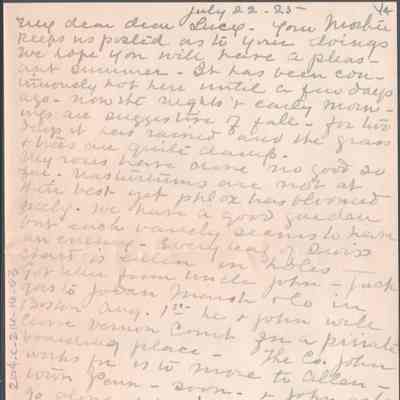 July 22-25-
My dear dear Lucy. Your Mother
keeps us posted as to your doings
We hope you will have a pleas-
ant summer. It has been con-
tinuously hot here until a few days
ago. now the nights & early morn-
ings are suggestive of fall. for two
days it has rained and the grass
& trees are quite damp.
My roses have done no good so
far. Nasturtiums are not at
their best yet phlox has bloomed
We have a good garden
but each variety seems to have
an enemy. Every leaf of Swiss
chard is eaten in holes
got letter from uncle John - Jack
goes to Jordan Marsh & Co in
Boston Aug. 1st he & John will
leave Vernon Court for a private
boarding place - The Co. John
works for is to move to Allen-
town Penn - soon - & John
go